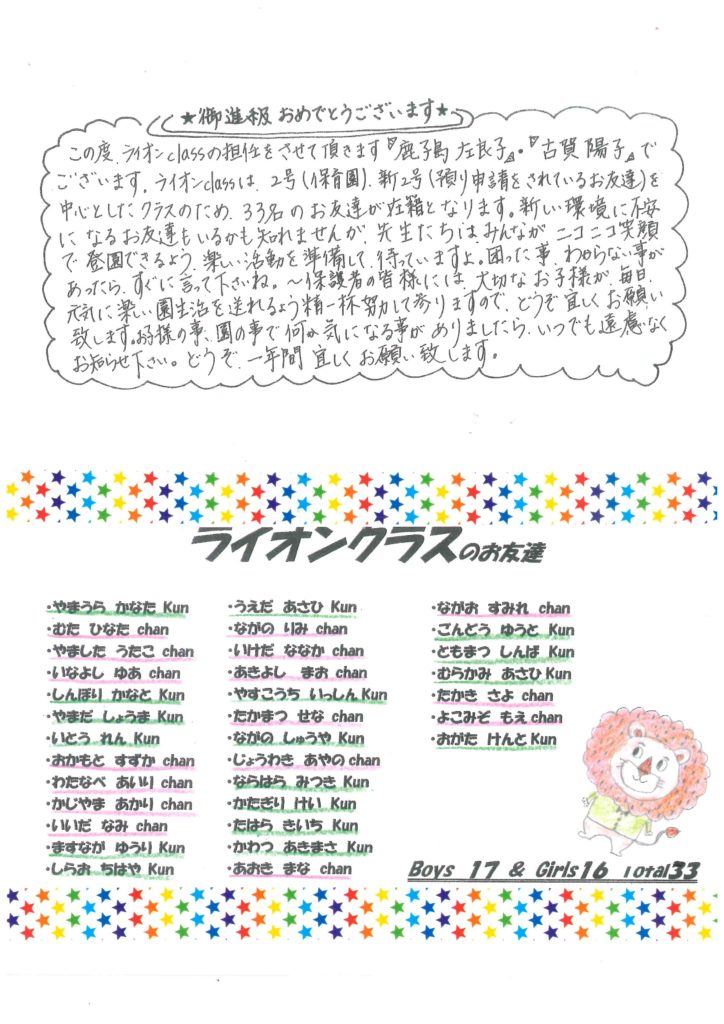 ★御進級 おめでとうございます★
この度、ライオンclassの担任をさせて頂きます『鹿子島 左良子』・『古賀 陽子』で
ございます。ライオンclassは、2号(保育園)、新2号(預り申請をされているお友達)を
中心としたクラスのため、33名のお友達が在籍となります。新しい環境に不安
になるお友達もいるかも知れませんが、先生たちはみんながニコニコ笑顔
で登園できるよう、楽しい活動を準備して、待っていますよ。困った事、わからない事が
あったら、すぐに言って下さいね。〜保護者の皆様には、大切なお子様が、毎日、
元気に楽しい園生活を送れるよう精一杯努力して参りますので、どうぞ宜しくお願い
致します。お子様の事、園の事で何か気になる事がありましたら、いつでも遠慮なく
お知らせ下さい。どうぞ、一年間宜しくお願い致します。
ライオンクラスのお友達
・やまうら かなた Kun
・むた ひなた chan
・やました うたこ chan
・いなよし ゆあ chan
・しんぼり かなと Kun
・やまだ しょうま Kun
・いとう れん Kun
・おかもと すずか chan
・わたなべ あいり chan
・かじやま あかり chan
・いいだ なみ chan
・ますなが ゆうり Kun
・しらお ちはや Kun
・うえだ あさひ Kun
・ながの りみ chan
・いけだ ななか chan
・あきよし まお chan
・やすこうち いっしん Kun
・たかまつ せな chan
・ながの しゅうや Kun
・じょうわき あやの chan
・ならはら みつき Kun
・かたぎり けい Kun
・たはら きいち Kun
・かわつ あきまさ Kun
・あおき まな chan
・ながお すみれ chan
・ごんどう ゆうと Kun
・ともまつ しんば Kun
・むらかみ あさひ Kun
・たかき さよ chan
・よこみぞ もえ chan
・おがた けんと Kun
Boys 17 & Girls16 Total33